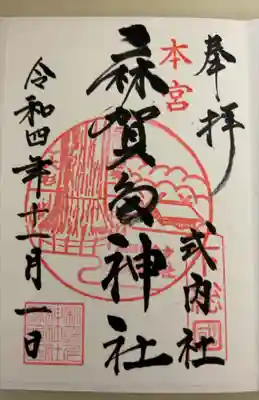 奉拝
式内社
本宮
麻賀多神社
令和四年十一月一日